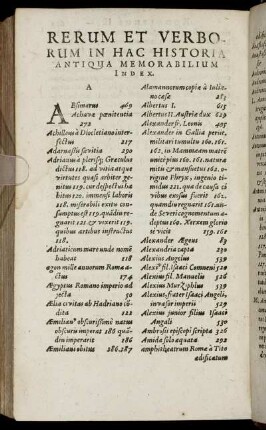 RERUM ET VERBO-
RUM IN HAC HISTORIA
ANTIQUA MEMORABILIUM
INDEX.
A
ABsimarus 469
Achaiæ pœnitentia
272
Achilleus à Diocletiano inter-
fectus 217
Adrianus à plerisq; Græculus
dictus 118. ad vitia atque
virtutes quasi arbiter ge-
nitus 119.
120. immensi laboris
118. miserabili exitu con-
sumptus est 119. quādiu re-
gnarit 121. & vixerit 119.
quibus artibus instructus
118.
Adriaticum mare unde nomē
habeat 118
agon mille annorum Romæ a-
ctus 174
Ægyptus Romano imperio ad
jecta 30
Ælia civitas ab Hadriano con
dita 122
Æmilianus obscurissimè natus
obscuriùs imperat 186 quā
diu imperarit 186
Æmiliani obitus 186.187
Alamanorum copiæ à Iulia-
no cæsæ 285
Albertus I. 615
Albertus II. Austriæ dux 629
Alexander fr. Leonis 495
Alexander in Gallia perit,
militari tumultu 160. 161.
162. in Mammæam matrē
unicè pius 160. 161. natura
mitis & mansuetus 162. o-
rigine Phryx, ingenio ti-
midus
ribus ensius fuerit 161.
quamdiu regnarit 162. un-
de Severi cognomentum a-
deptus 160. Xerxem glorio-
sè vicit 159. 160
Alexander Ægeus 89
Alexandria capta 330
Alexius Angelus 539
Alexi⁹ fil. Isaaci Comneni 520
Alexius fil. Manuelis 526
Alexius Murzophlus 539
Alexius, frater Isaaci Angeli,
invasor imperii 529
Alexius junior filius Isaaci
Angeli 530
Ambrosii episcopi scripta 326
Amida solo æquata 292
amphitheatrum Romæ à Tito
ædificatum